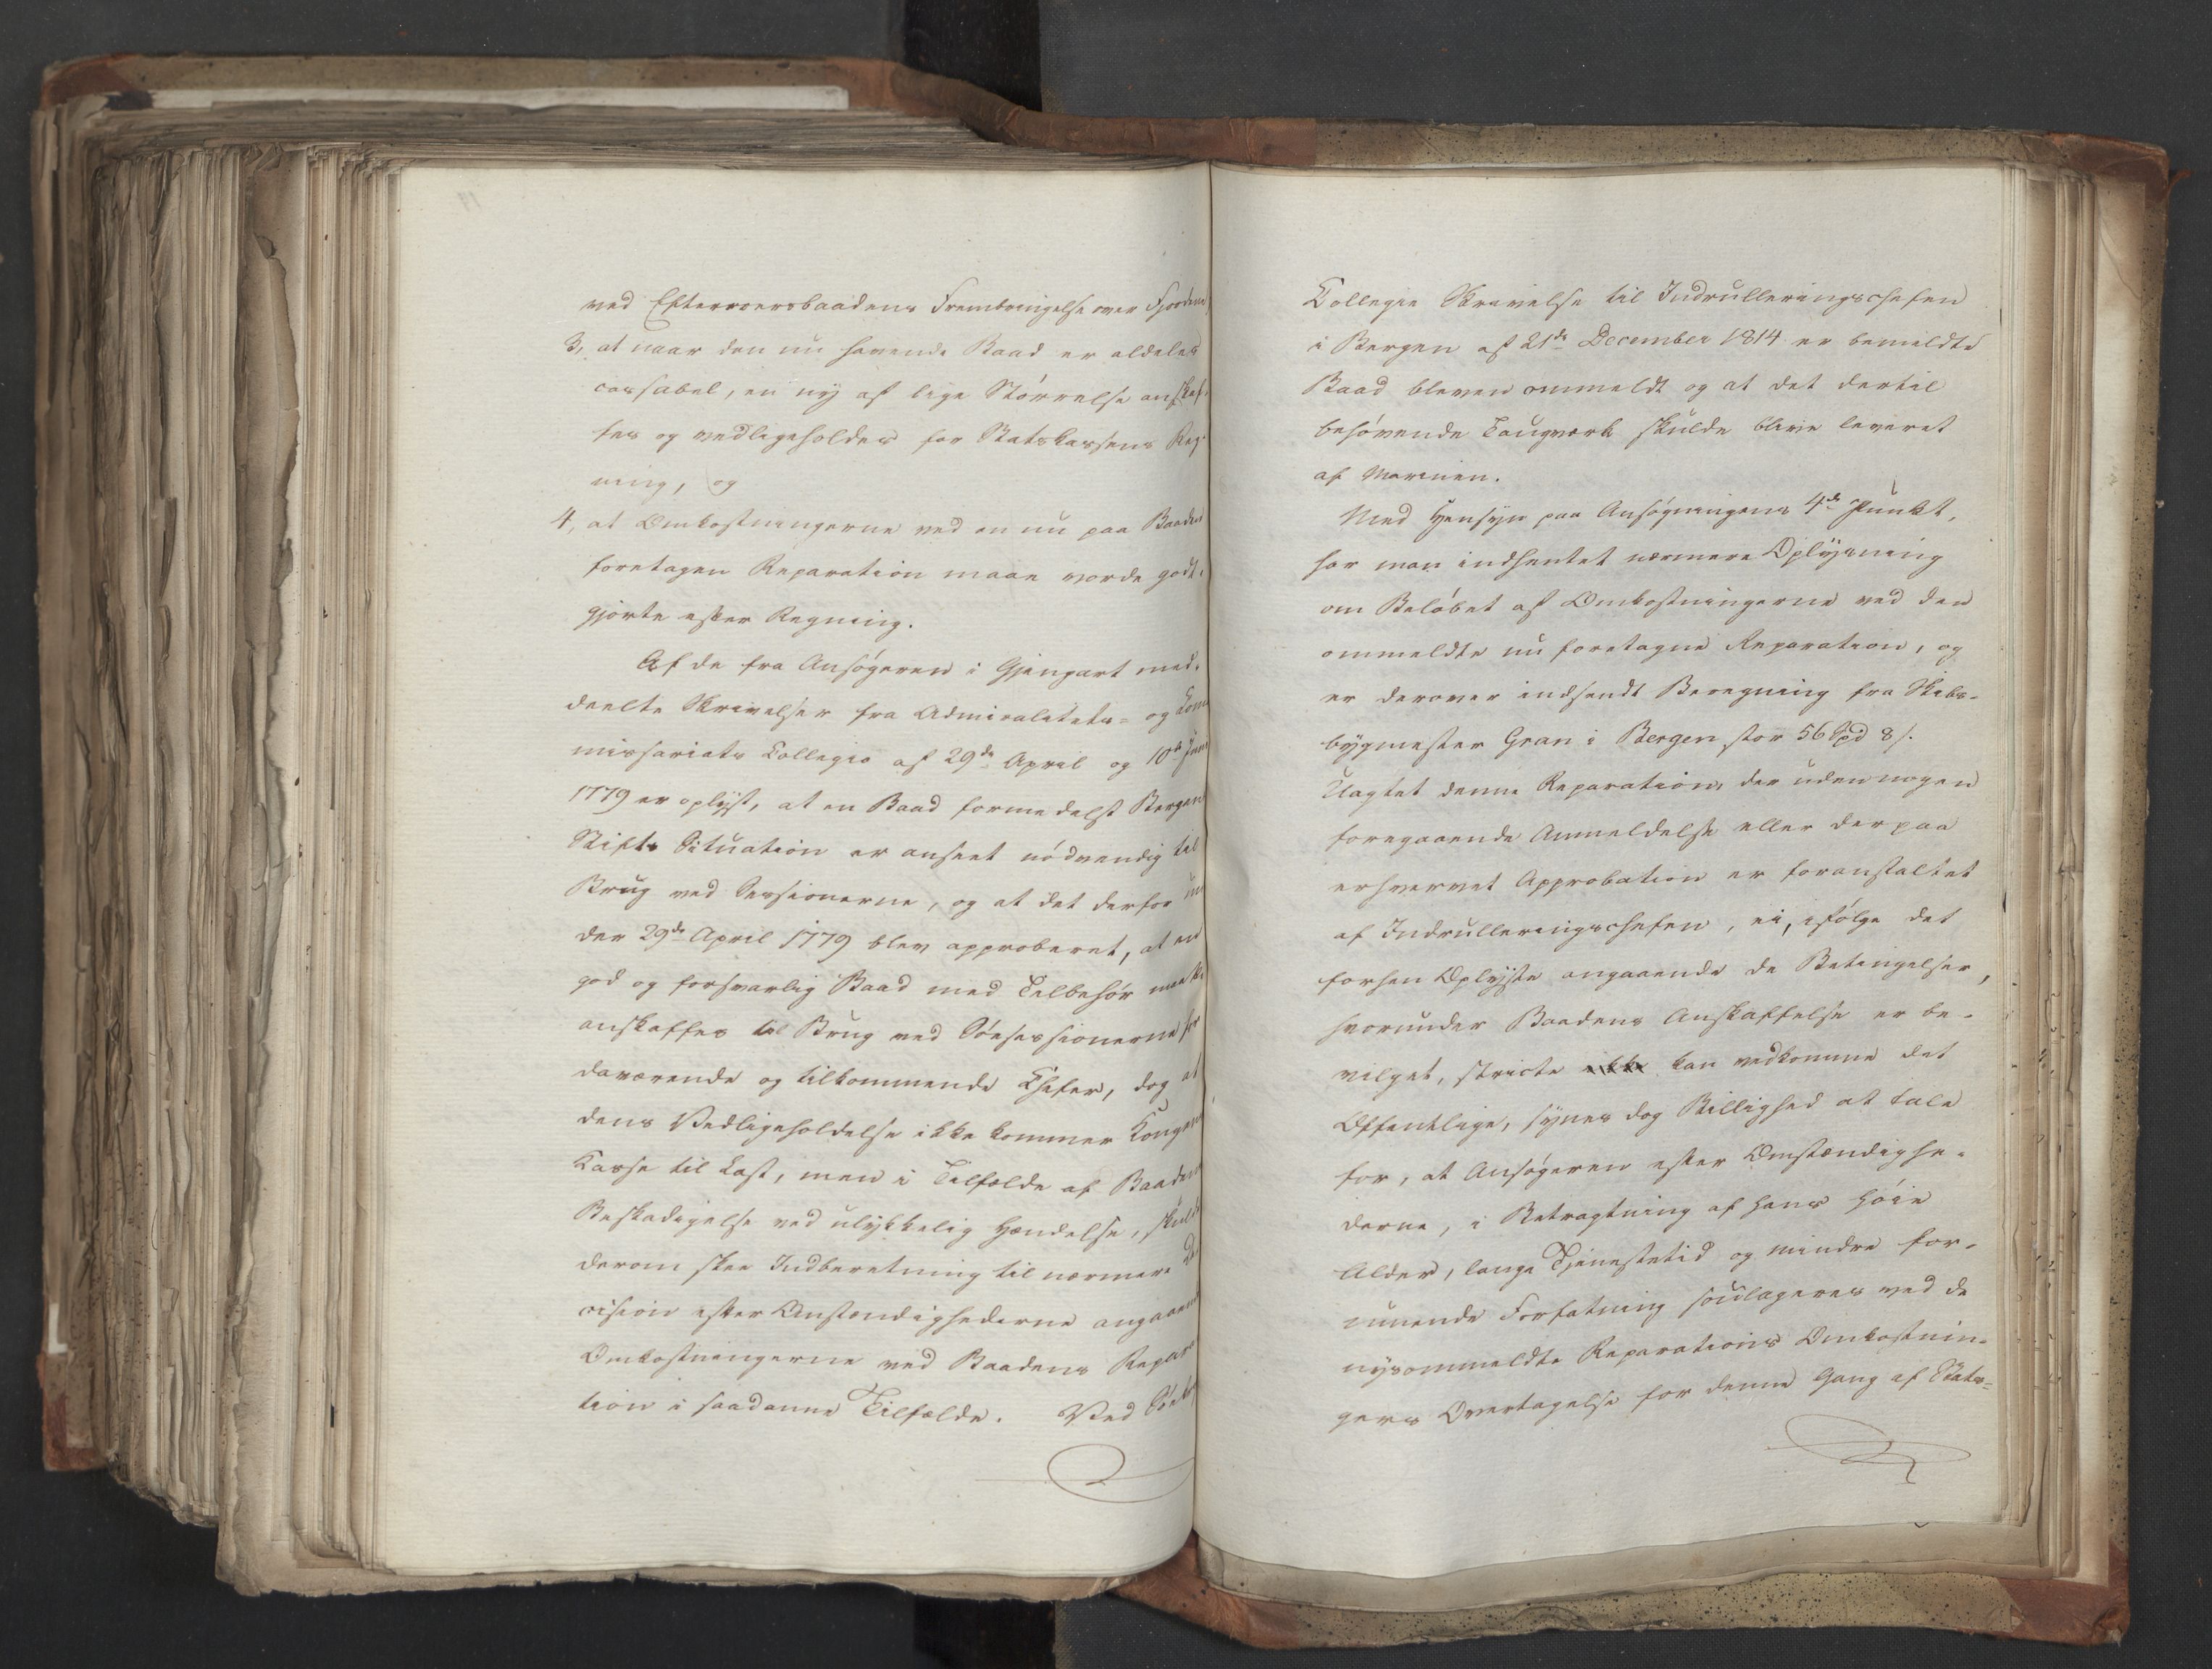 ved Efterroersbaadens Frembringelse over Fjordene
3, at naar den nu havende Baad er aldeles
cassabel, en ny af lige Størrelse anskaf-
fes og vedligeholdes for Statskassens Reg-
ning, og
4, at Omkostningerne ved en nu paa Baaden
foretagen Reparation maae vorde godt-
gjorte efter Regning.
Af de fra Ansøgeren i Gjenpart med-
deelte Skrivelser fra Admiralitets- og Com-
missariats Collegio af 29de April og 10de Juni
1779 er oplyst, at en Baad formedelst Bergens
Stifts Situation er anseet nødvendig til
Brug ved Sessionerne, og at det derfor un-
der 29de April 1779 blev approberet, at en
god og forsvarlig Baad med Tilbehør maatte
anskaffes til Brug ved Søesessionerne for
daværende og tilkommende Chefer, dog at
dens Vedligeholdelse ikke kommer Kongens
Casse til Last, men i Tilfælde af Baadens
Beskadigelse ved ulykkelig Hændelse, skulde
derom skee Indberetning til nærmere De-
cision efter Omstændighederne angaaende
Omkostningerne ved Baadens Repara-
tion i saadanne Tilfælde. Ved
Collegie Skrivelse til Indrulleringschefen
i Bergen af 21de December 1814 er bemeldte
Baad bleven ommeldt og at det dertil
behøvende Taugværk skulde blive leveret
af Marinen.
Med Hensyn paa Ansøgningens 4de Punkt,
har man indhentet nærmere Oplysning
om Beløbet af Omkostningerne ved den
ommeldte nu foretagne Reparation, og
er derover indsendt Beregning fra Skibs-
bygmester Gran i Bergen stor 56 Spd 8 s.
Uagtet denne Reparation, der uden nogen
foregaaende Anmeldelse eller derpaa
erhvervet Approbation er foranstaltet
af Indrulleringschefen, ei, ifølge det
forhen Oplyste angaaende de Betingelser,
hvorunder Baadens Anskaffelse er be-
vilget, stricte ikke kan vedkomme det
Offentlige, synes dog Billighed at tale
for, at Ansøgeren efter Omstændighe-
derne, i Betragtning af hans høie
Alder, lange Tjenestetid og mindre for-
muende Forfatning soulageres ved de
nysommeldte Reparations Omkostnin-
gers Overtagelse for denne Gang af Stats-